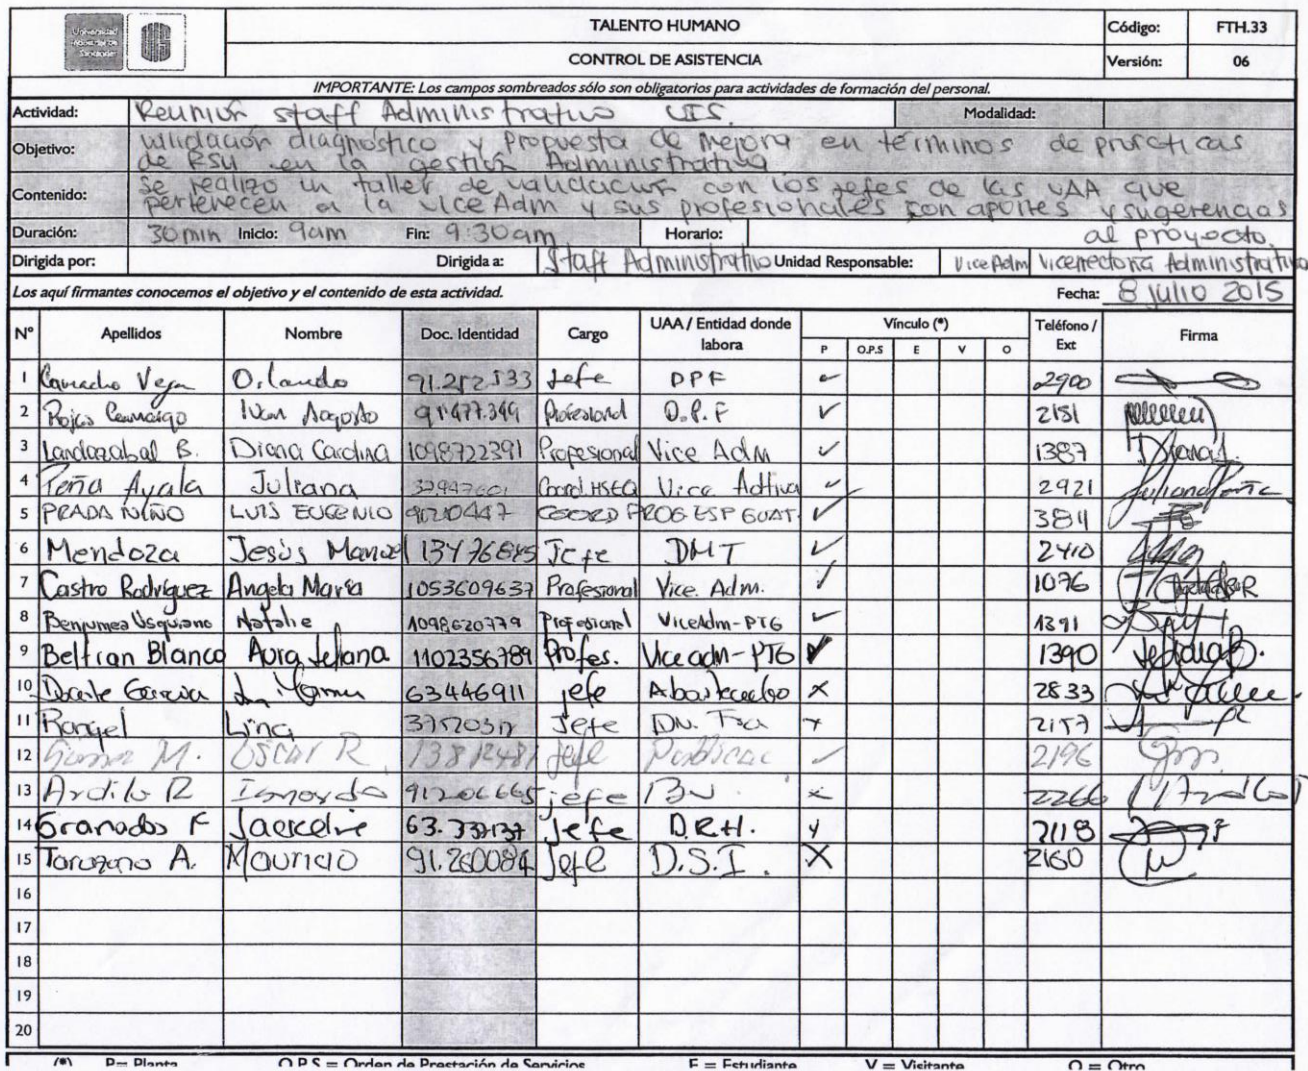 Universidad Industrial de Santander
TALENTO HUMANO
Código: FTH.33
CONTROL DE ASISTENCIA
Versión: 06
IMPORTANTE: Los campos sombreados sólo son obligatorios para actividades de formación del personal.
Actividad: Reunión staff Administrativo UIS. Modalidad:
Objetivo: validación diagnóstico y propuesta de mejora en términos de prácticas
de RSU en la gestión Administrativa
Contenido: se realizo un taller de validación con los jefes de las UAA que
pertenecen a la vice Adm y sus profesionales con aportes y sugerencias
al proyecto.
Duración: 30 min Inicio: 9am Fin: 9:30am Horario:
Dirigida por: Dirigida a: Staff Administrativo Unidad Responsable: Vice Adm Vicerrectoría Administrativa
Los aquí firmantes conocemos el objetivo y el contenido de esta actividad. Fecha: 8 julio 2015
N° Apellidos Nombre Doc. Identidad Cargo UAA / Entidad donde labora Vínculo (*) Teléfono / Ext Firma
P O.P.S E V O
1 Camacho Vega Orlando Jefe DPF 2900
2 Rojas Camargo Ivan Augosto 91477.349 Profesional O.P.F 2151
3 Landazabal B. Diana Carolina 1098722391 Profesional Vice Adm 1387 Diana L.
4 Peña Ayala Juliana Coord. HSEQ Vice Adtiva 2921 Juliana Peña
5 PRADA NIÑO LUIS EUGENIO COORD PROG ESP GUAT. 3811
6 Mendoza Jesús Manuel 13476845 Jefe DMT 2410
7 Castro Rodríguez Angela María 1053609637 Profesional Vice. Adm. 1076
8 Benjumea Usquiano Natalie 1098620779 Profesional ViceAdm-PTG 1391
9 Beltran Blanco Aura 1102356789 Profes. Vice adm-PTG 1390
10 Duarte Garcia 63446911 jefe 2833
11 Rangel Lina Jefe 2157
12 M. Oscar R jefe 2196
13 Ardila R jefe 2266
14 Granados F 63. Jefe D.R.H. 2118
15 Mauricio 91.260084 Jefe D.S.I. 2160
16
17
18
19
20
(*) P= Planta O.P.S = Orden de Prestación de Servicios E = Estudiante V = Visitante O = Otro